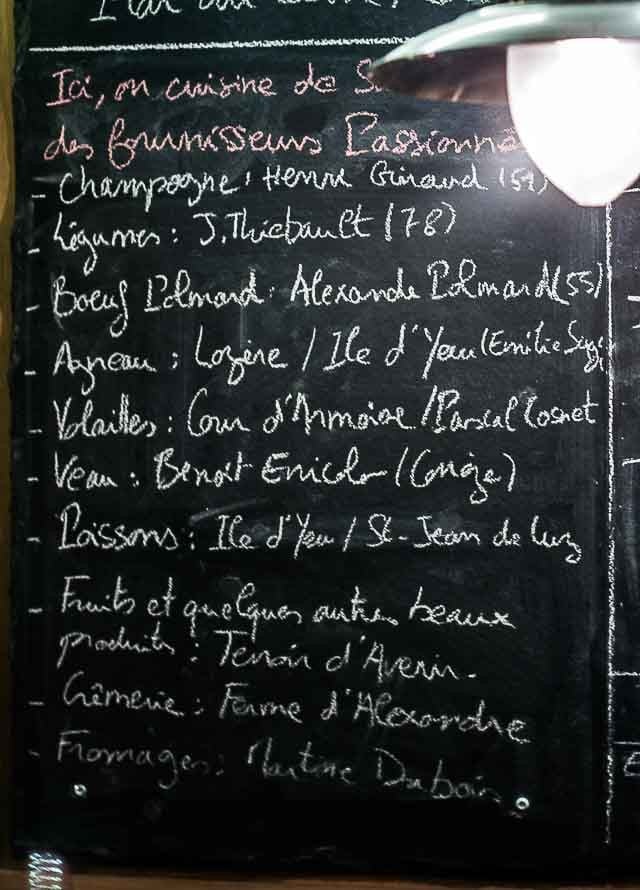 Ici, on cuisine de
des fournisseurs Passionné
- Champagne : Henri Giraud (51)
- Légumes : J. Thiebault (78)
- Boeuf Polmard : Alexandre Polmard (55)
- Agneau : Lozère / Ile d'Yeu (Emilie
- Volailles : Cour d'Armoise / Pascal Cosnet
- Veau : Benoit (Corrèze)
- Poissons : Ile d'Yeu / St-Jean de Luz
- Fruits et quelques autres beaux
produits : Terroir d'Avenir.
- Crèmerie : Ferme d'Alexandre
- Fromages : Martine Dubois